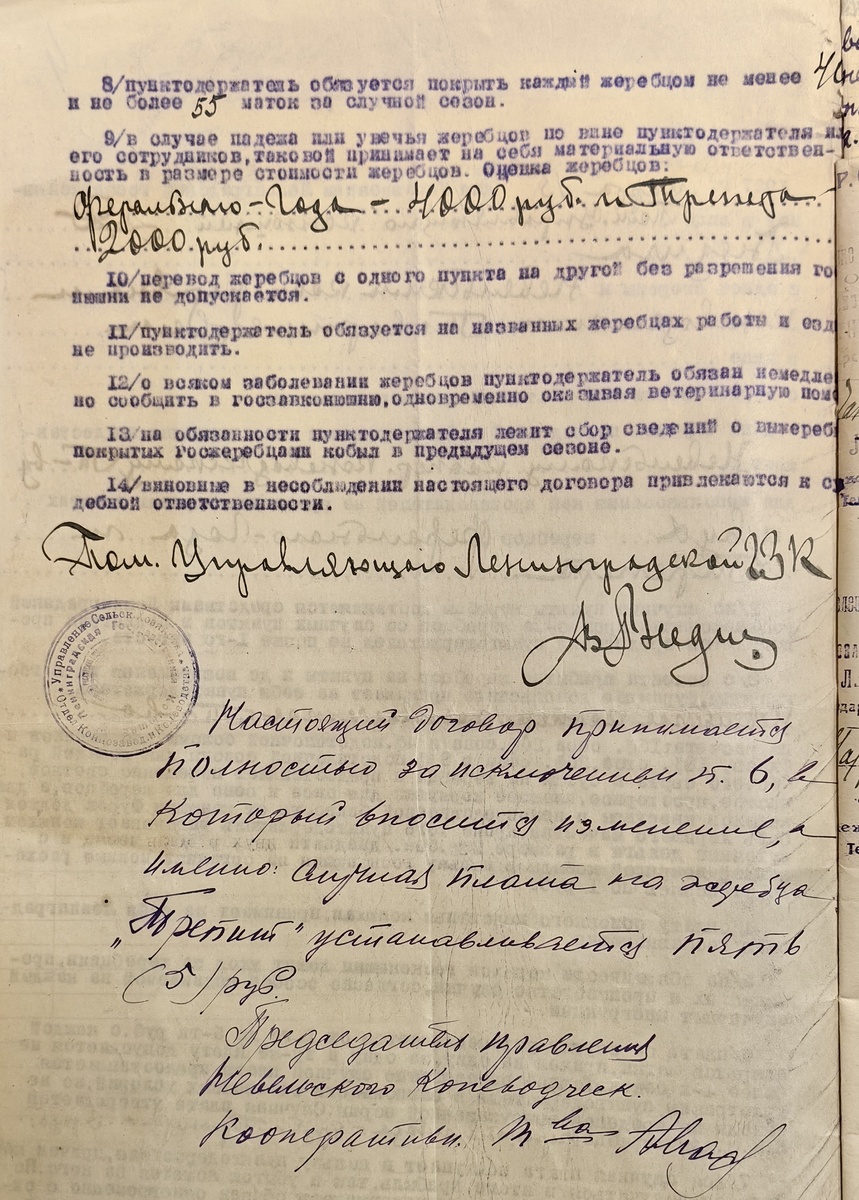 8/пунктодержатель обязуется покрыть каждый жеребцом не менее 40
и не более 55 маток за случной сезон.
9/в случае падежа или увечья жеребцов по вине пунктодержателя ил
его сотрудников,таковой принимает на себя материальную ответствен-
ность в размере стоимости жеребцов. Оценка жеребцов:
Года - 4000 руб. и
2000 руб.
10/перевод жеребцов с одного пункта на другой без разрешения го
нюшни не допускается.
11/пунктодержатель обязуется на названных жеребцах работы и езд
не производить.
12/о всяком заболевании жеребцов пунктодержатель обязан немедле
но сообщить в госзавконюшню,одновременно оказывая ветеринарную пом
13/на обязанности пунктодержателя лежит сбор сведений о выжереб
покрытых госжеребцами кобыл в предыдущем сезоне.
14/виновные в несоблюдении настоящего договора привлекаются к су
дебной ответственности.
Пом. Управляющего Ленинградской ГЗК
Управление Сельск. Хозяйства
Отдел Коннозавод. и Коневодства
Ленинградская Гос
Настоящий договор принимается
полностью за исключением п. 6, в
который вносится изменение, а
именно: случная плата на жеребца
„Трепит" устанавливается пять
(5) руб.
Председатель правления
Невельского Коневодческ.
Кооперативн. т-ва